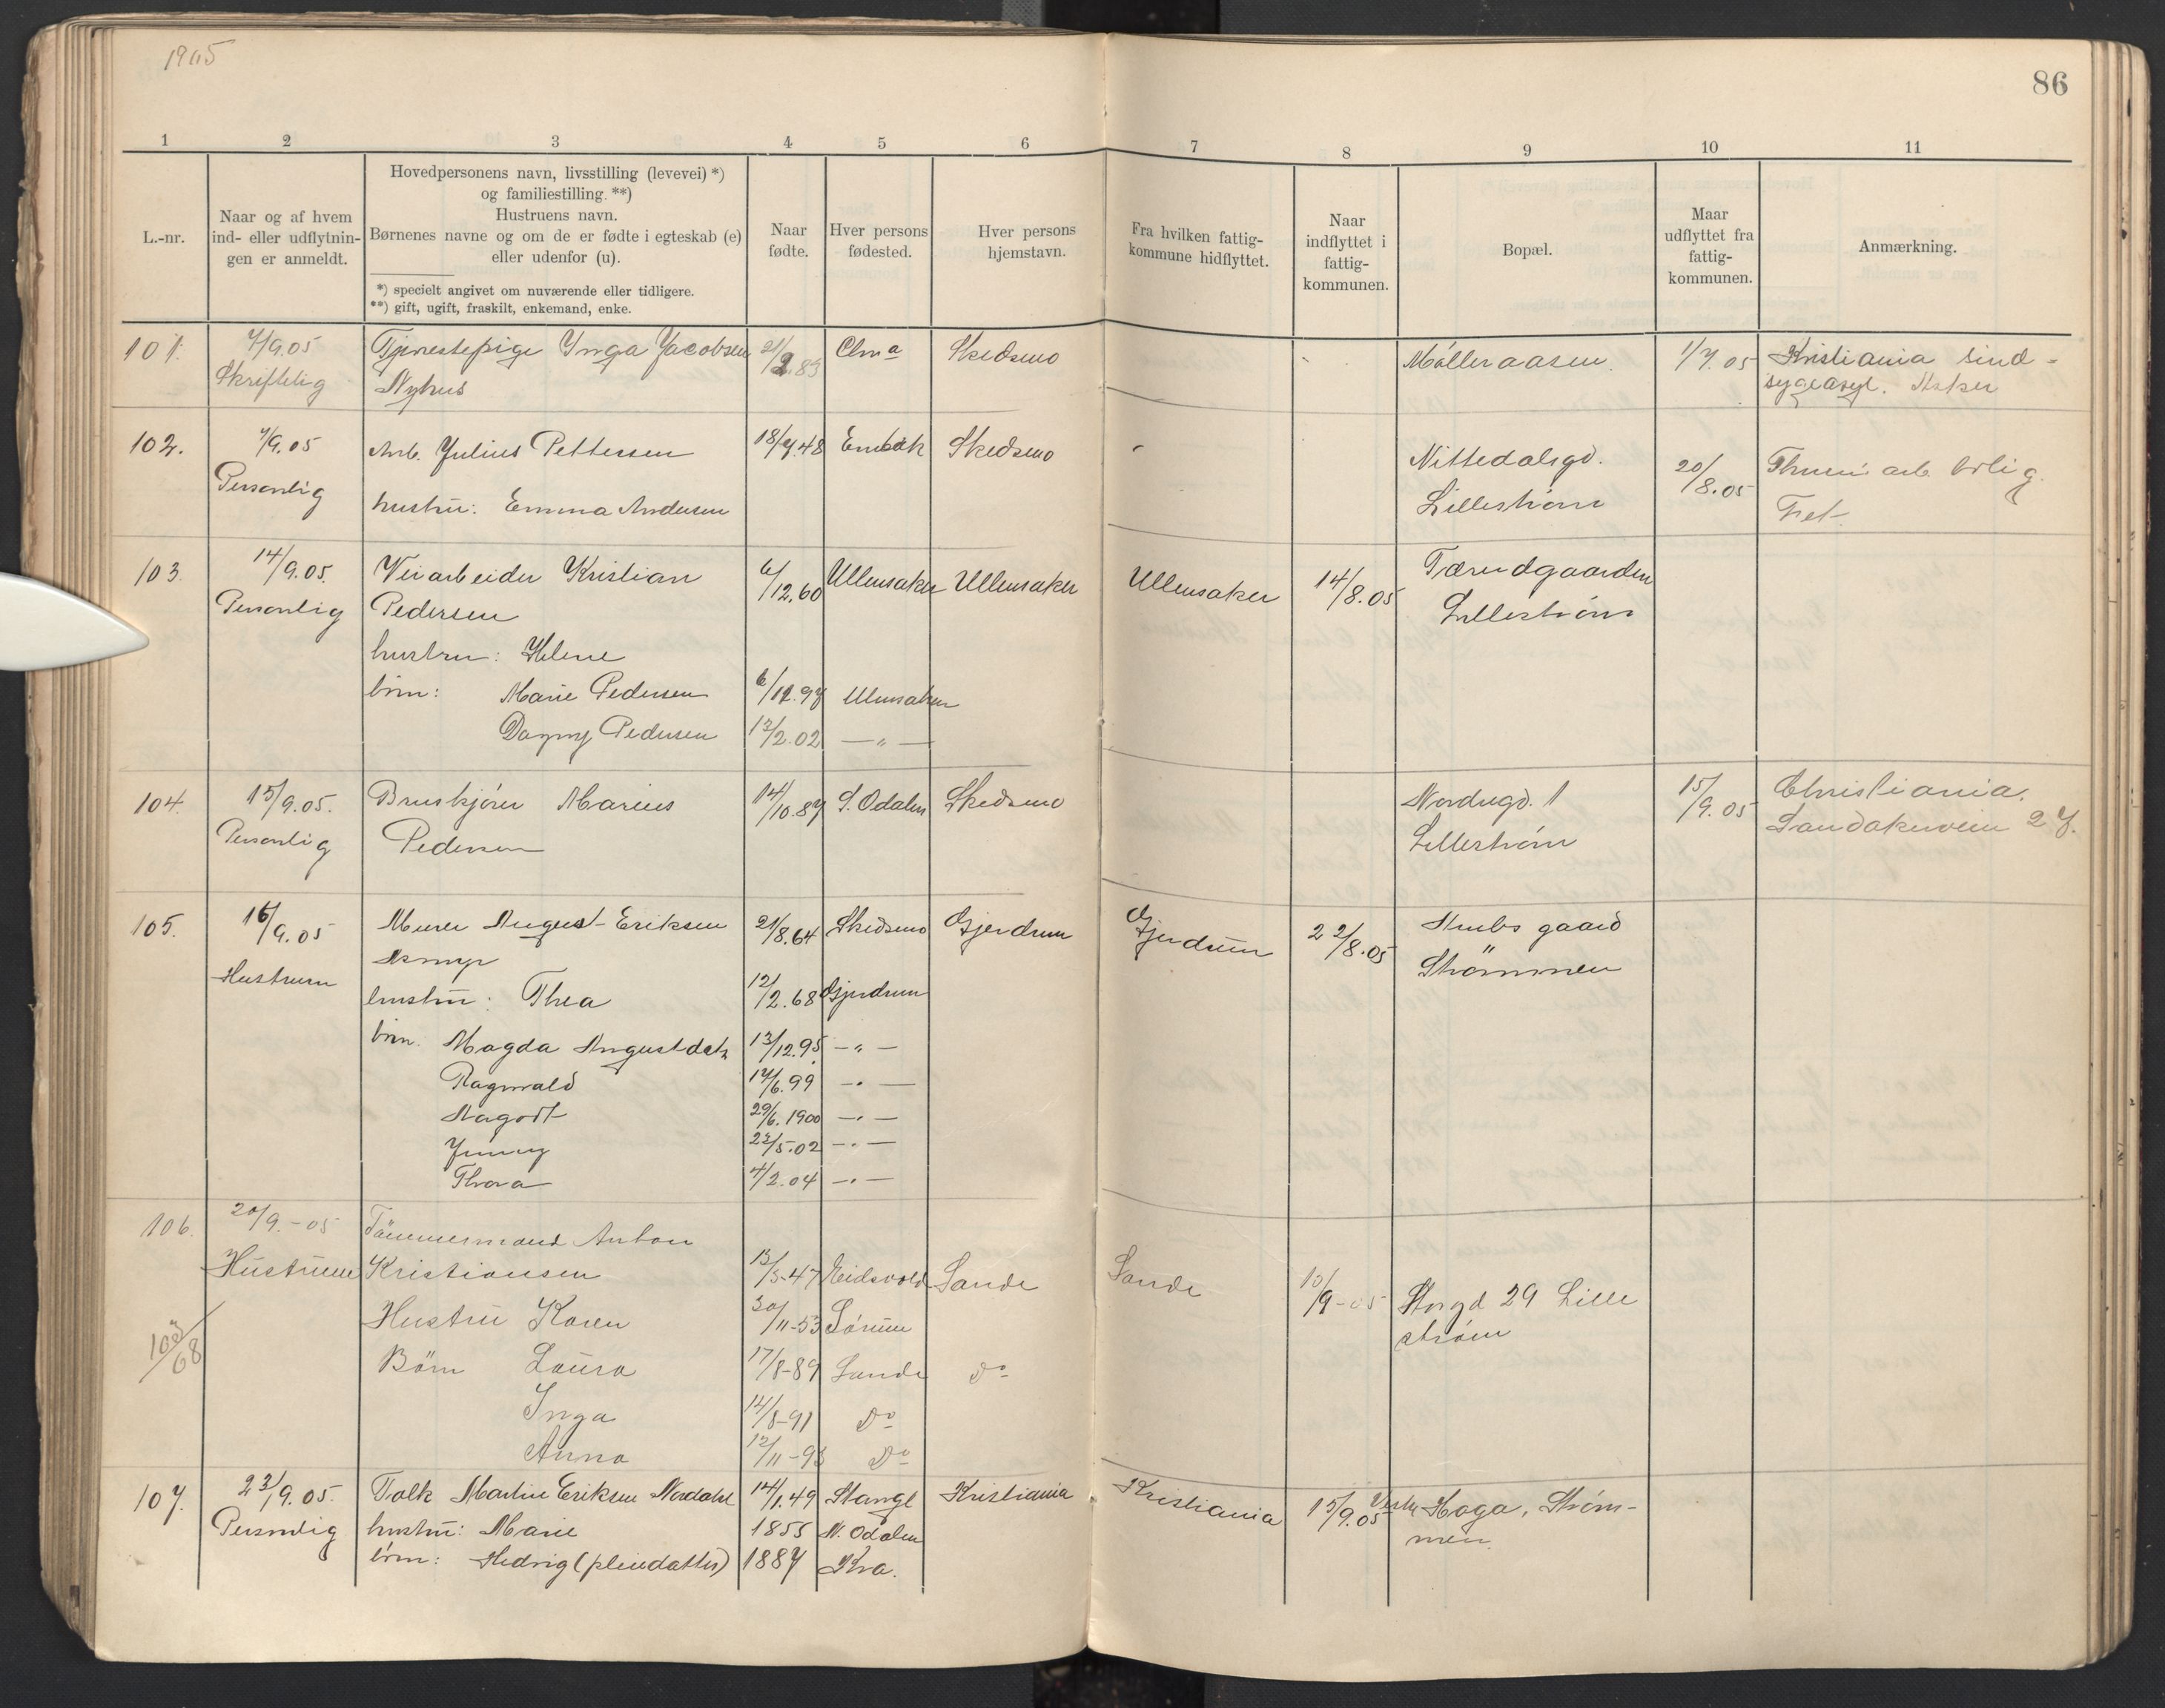 1905
86
1 2 3 4 5 6 7 8 9 10 11
L.-nr.
Naar og af hvem
ind- eller udflytnin-
gen er anmeldt.
Hovedpersonens navn, livsstilling (levevei) *)
og familiestilling. **)
Hustruens navn.
Børnenes navne og om de er fødte i egteskab (e)
eller udenfor (u).
*) specielt angivet om nuværende eller tidligere.
**) gift, ugift, fraskilt, enkemand, enke.
Naar
fødte.
Hver persons
fødested.
Hver persons
hjemstavn.
Fra hvilken fattig-
kommune hidflyttet.
Naar
indflyttet i
fattig-
kommunen.
Bopæl.
Maar
udflyttet fra
fattig-
kommunen.
Anmærkning.
101. 7/9.05 Tjenestepige Inga Jacobsen 21/2.83 Skedsmo Mølleraasen. 1/7.05 Kristiania sind-
Skriftlig Nyhus sygeasyl. Asker
102. 7/9.05 Arb. Julius Pettersen 18/7.48 Enebak Skedsmo Nittedalsgd. 20/8.05 arb. bolig
Personlig hustru: Emma Andersen Lillestrøm Fet
103. 14/9.05. Veiarbeider Kristian 6/12.60 Ullensaker Ullensaker Ullensaker 14/8.05
Personlig Pedersen Lillestrøm
hustru: Helene
børn: Marie Pedersen 6/12.97 Ullensaker
Dagny Pedersen 13/2.02 — " —
104. 15/9.05. Bruskjører Marius 14/10.87 S. Odalen Skedsmo Nordregd. 1 15/9.05 Christiania.
Personlig Pedersen Lillestrøm Sandakerveien 27.
105. 16/9.05 Murer August Eriksen 21/8.64 Skedsmo Gjerdrum Gjerdrum 22/8.05 Stubs gaard
Asmyr Strømmen
Hustruen hustru: Thea 12/2.68 Gjerdrum
børn Magda Augustdatr 13/12.95 — " —
Ragnvald 17/6.99 — " —
Aagodt 29/6.1900 — " —
Jenny 23/5.02 — " —
Thora 4/2.04 — " —
106. 20/9.-05 Tömmermand Anton
Hustruen Kristiansen 13/5-47 Eidsvold Sande Sande 10/9-05 Storgd 29 Lille
Hustru Karen 30/11-53 Sørum strøm
Börn Laura 17/8-89 Sande Do
Inga 14/8-91 Do
Anna 12/11-93 Do
107. 23/9.05. Tolk Martin Eriksen Nordahl 14/1.49 Stange Kristiania Kristiania 15/9.05 Vestre Haga, Strøm-
Personlig hustru: Marie 1855 N. Odalen men.
børn: Hedvig (pleiedatter) 1887 Kra.